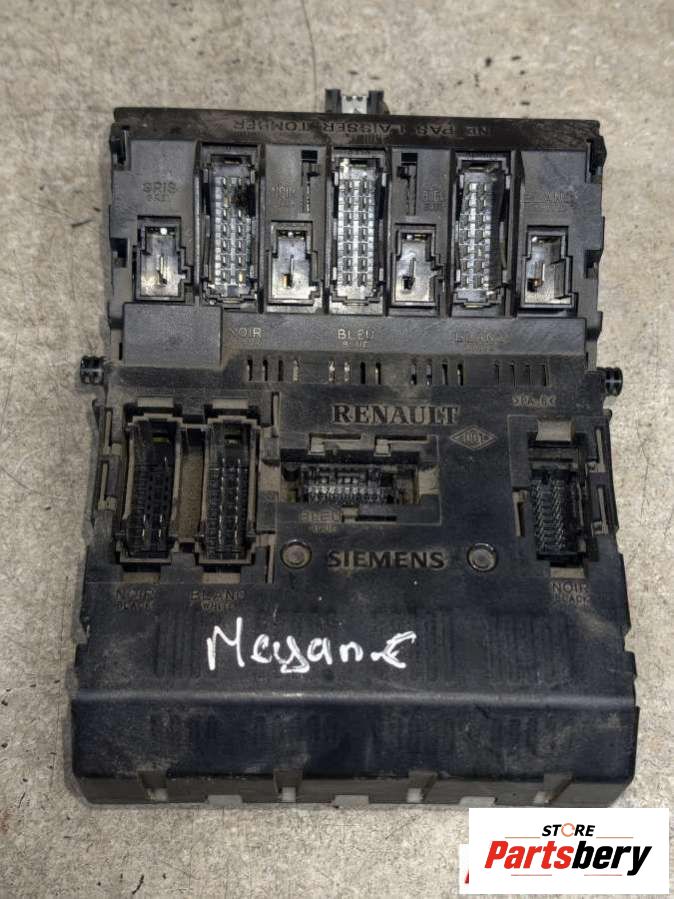 NE PAS LAISSER TOMBER
GRIS
GREY
NOIR
BLEU
BLANC
NOIR
BLEU
BLUE
BLANC
RENAULT
BLEU
SIEMENS
NOIR
BLACK
BLANC
WHITE
NOIR
BLACK
Megane
STORE
Partsbery